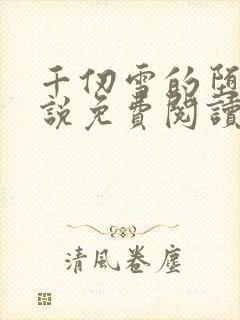 千仞雪的堕
説免費閱讀
清風卷塵